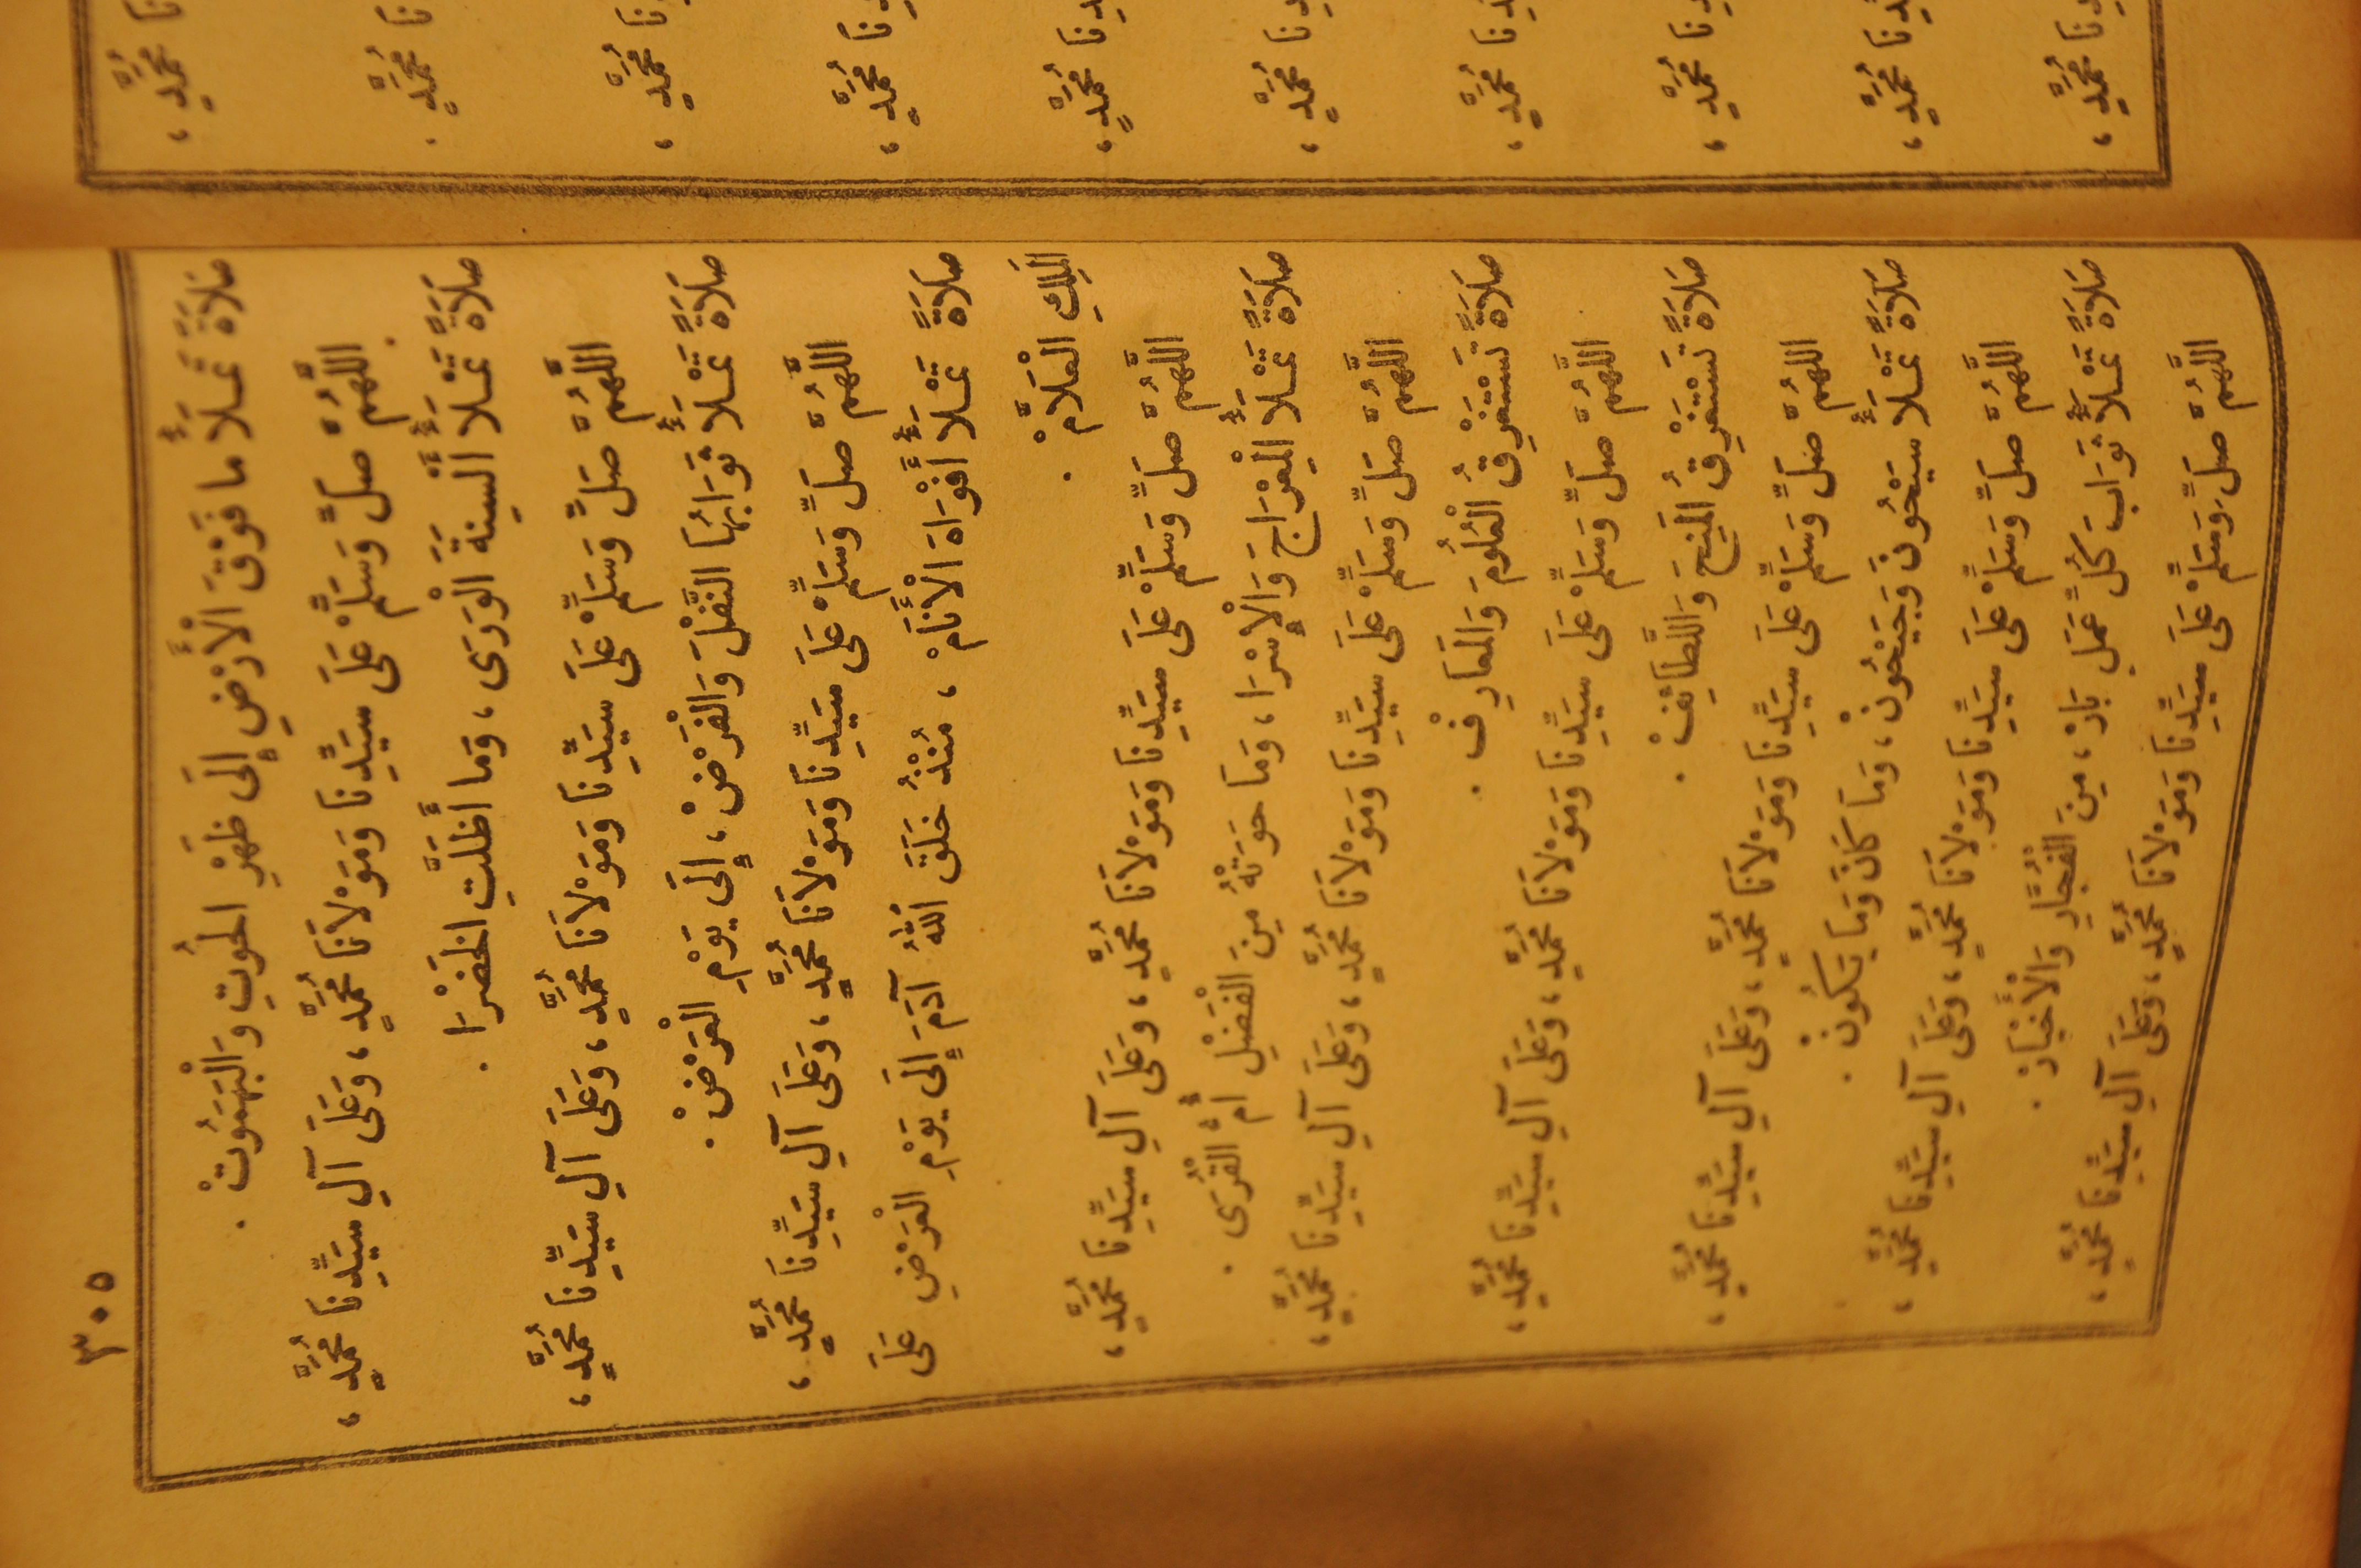 نَا مُحَمَّدٍ ،
نَا مُحَمَّدٍ .
نَا مُحَمَّدٍ ،
نَا مُحَمَّدٍ ،
دِنَا مُحَمَّدٍ ،
دِنَا مُحَمَّدٍ ،
دِنَا مُحَمَّدٍ ،
دِنَا مُحَمَّدٍ ،
دِنَا مُحَمَّدٍ ،
دِنَا مُحَمَّدٍ ،
٣٠٥
صَلَاةً تَمْلَأُ مَا فَوْقَ الْأَرْضِ إِلَى ظَهْرِ الحُوتِ وَالْبَهَمُوتْ .
اللَّهُمَّ صَلِّ وَسَلِّمْ عَلَى سَيِّدِنَا وَمَوْلَانَا مُحَمَّدٍ ، وَعَلَى آلِ سَيِّدِنَا مُحَمَّدٍ ،
صَلَاةً تَمْلَأُ أَلْسِنَةَ الْوَرَى ، وَمَا أَظَلَّتِ الخَضْرَا .
اللَّهُمَّ صَلِّ وَسَلِّمْ عَلَى سَيِّدِنَا وَمَوْلَانَا مُحَمَّدٍ ، وَعَلَى آلِ سَيِّدِنَا مُحَمَّدٍ ،
صَلَاةً تَمْلَأُ ثَوَابُهَا النَّفْلَ وَالْفَرْضْ ، إِلَى يَوْمِ الْعَرْضْ .
اللَّهُمَّ صَلِّ وَسَلِّمْ عَلَى سَيِّدِنَا وَمَوْلَانَا مُحَمَّدٍ ، وَعَلَى آلِ سَيِّدِنَا مُحَمَّدٍ ،
صَلَاةً تَمْلَأُ أَفْوَاهَ الْأَنَامْ ، مُنْذُ خَلَقَ اللهُ آدَمَ إِلَى يَوْمِ الْعَرْضِ عَلَى
المَلِكِ الْعَلَّامْ .
اللَّهُمَّ صَلِّ وَسَلِّمْ عَلَى سَيِّدِنَا وَمَوْلَانَا مُحَمَّدٍ ، وَعَلَى آلِ سَيِّدِنَا مُحَمَّدٍ ،
صَلَاةً تَمْلَأُ الْمِعْرَاجَ وَالْإِسْرَا ، وَمَا حَوَتْهُ مِنَ الْفَضْلِ أُمُّ الْقُرَى .
اللَّهُمَّ صَلِّ وَسَلِّمْ عَلَى سَيِّدِنَا وَمَوْلَانَا مُحَمَّدٍ ، وَعَلَى آلِ سَيِّدِنَا مُحَمَّدٍ ،
صَلَاةً تَسْتَغْرِقُ الْعُلُومَ وَالمَعَارِفْ .
اللَّهُمَّ صَلِّ وَسَلِّمْ عَلَى سَيِّدِنَا وَمَوْلَانَا مُحَمَّدٍ ، وَعَلَى آلِ سَيِّدِنَا مُحَمَّدٍ ،
صَلَاةً تَسْتَغْرِقُ المِنَحَ وَاللَّطَائِفْ .
اللَّهُمَّ صَلِّ وَسَلِّمْ عَلَى سَيِّدِنَا وَمَوْلَانَا مُحَمَّدٍ ، وَعَلَى آلِ سَيِّدِنَا مُحَمَّدٍ ،
صَلَاةً تَمْلَأُ سَيْحُونَ وَجَيْحُونْ ، وَمَا كَانَ وَمَا يَكُونْ .
اللَّهُمَّ صَلِّ وَسَلِّمْ عَلَى سَيِّدِنَا وَمَوْلَانَا مُحَمَّدٍ ، وَعَلَى آلِ سَيِّدِنَا مُحَمَّدٍ ،
صَلَاةً تَمْلَأُ ثَوَابَ كُلِّ عَمَلِ بَارْ ، مِنَ الْفُجَّارِ وَالْأَخْيَارْ .
اللَّهُمَّ صَلِّ وَسَلِّمْ عَلَى سَيِّدِنَا وَمَوْلَانَا مُحَمَّدٍ ، وَعَلَى آلِ سَيِّدِنَا مُحَمَّدٍ ،